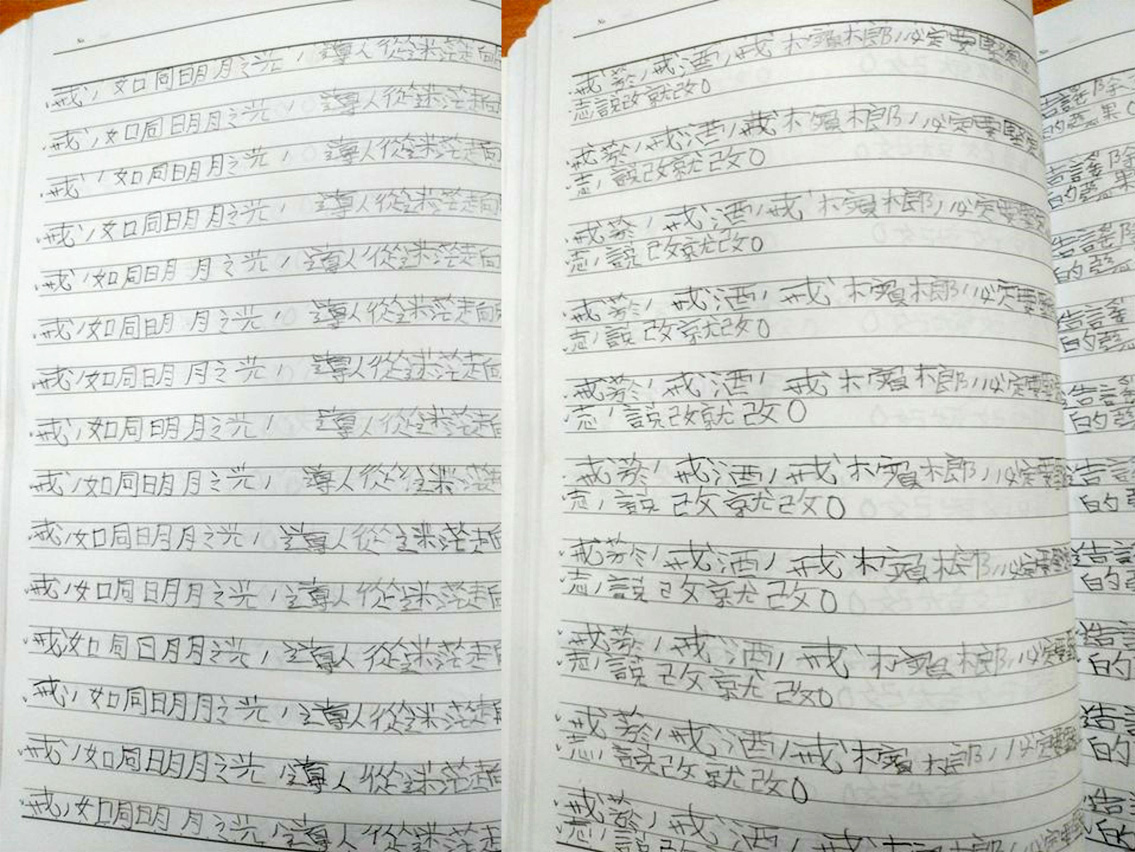 No
戒，如同明月之光，導人從迷茫走向
戒，如同明月之光，導人從迷茫走向
戒，如同明月之光，導人從迷茫走向
戒，如同明月之光，導人從迷茫走向
戒，如同明月之光，導人從迷茫走向
戒，如同明月之光，導人從迷茫走向
戒，如同明月之光，導人從迷茫走向
戒，如同明月之光，導人從迷茫走向
戒，如同明月之光，導人從迷茫走
戒，如同明月之光，導人從迷茫走向
戒，如同明月之光，導人從迷茫走向
戒如同明月之光，導人從迷茫走向
戒，如同明月之光，導人從迷茫走
戒，如同明月之光，導人從迷茫走向
戒，如同明月之光，導人從迷茫走
No
戒菸，戒酒，戒檳榔，必定要堅
志說改就改。
戒菸，戒酒，戒檳榔，必定要堅
志，說改就改。
戒菸，戒酒，戒檳榔，必定要
志，說改就改。
戒菸，戒酒，戒檳榔，必定要
志，說改就改。
戒菸，戒酒，戒檳榔，必定要
志，說改就改。
戒菸，戒酒，戒檳榔，必定要
志，說改就改。
戒菸，戒酒，戒檳榔，必定要
志，說改就改。
戒菸，戒酒，戒檳榔，必定要
志，說改就改。
戒菸，戒酒，戒檳榔，必定要
志，說改就改。
戒菸，戒酒，戒檳榔，必定要
志，說改就改